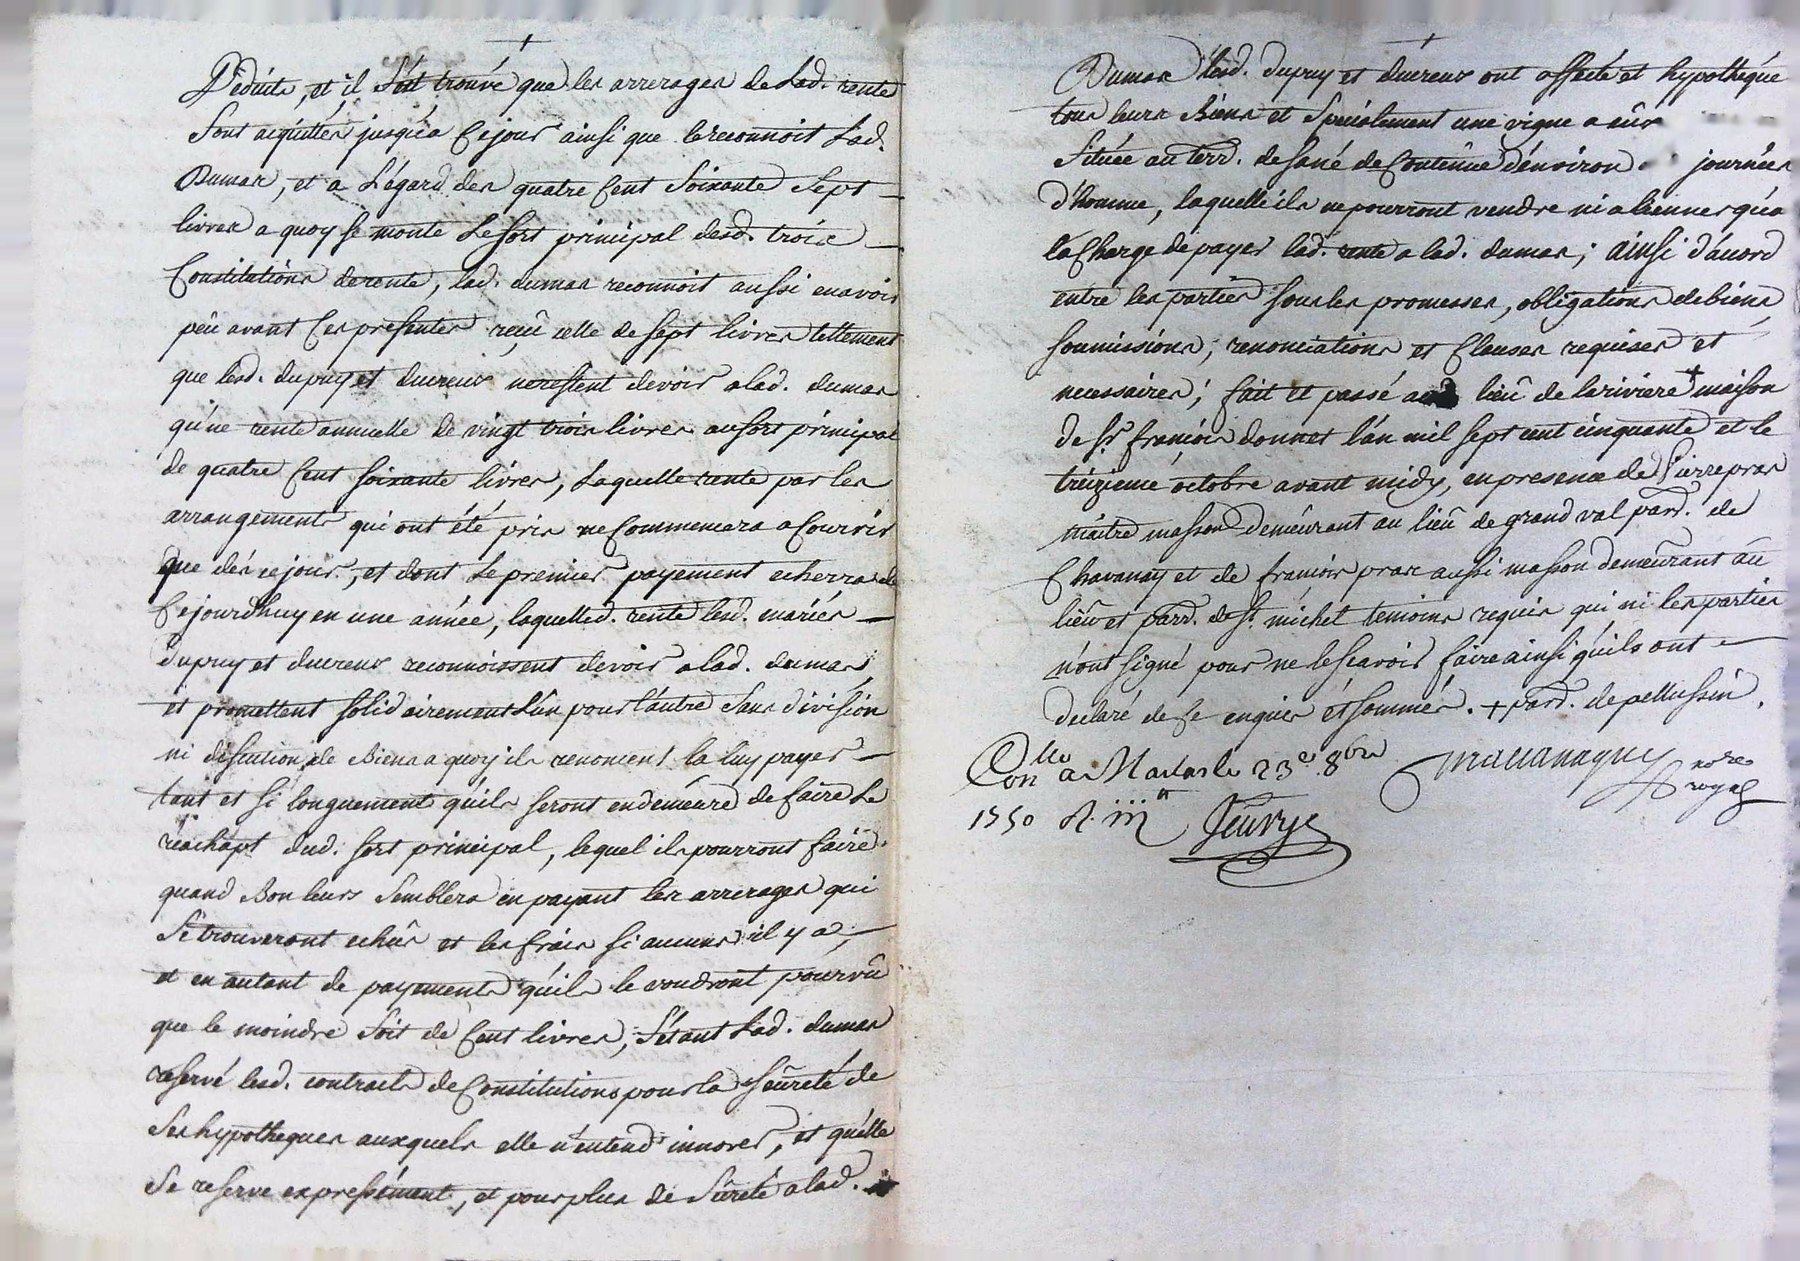 Déduits, et il s'est trouvé que les arrerages de Lad. rente
sont aquittés jusqu'a ce jour ainsi que le reconnoit Lad.
Dumas, et a L'égard des quatre cent soixante sept
livres a quoy se monte Le sort principal desd. trois
Constitutions de rente, lad. dumas reconnoit aussi en avoir
peu avant ces presentes reçû celle de sept livres tellement
que lesd. dupuy et ducreux ne restent devoir a lad. dumas
qu'une rente annuelle de vingt trois livres au sort principal
de quatre cent soixante livres, Laquelle rente par les
arrangements qui ont été pris ne Commencera a Courrir
que dés ce jour, et dont Le premier payement echerra de
Cejourdhuy en une année, laquelled. rente lesd. mariés
dupuy et ducreux reconnoissent devoir a lad. dumas,
et promettent solidairement L'un pour l'autre sans division
ni discution de Biens a quoy ils renoncent la luy payer
tant et si longuement qu'ils seront en demeure de faire Le
réachapt dud. sort principal, lequel ils pourront faire
quand Bon leurs semblera en payant les arrerages qui
se trouveront echûs et les frais si aucuns il y a,
et en autant de payements qu'ils le voudront pourvû
que le moindre soit de Cent livres, s'étant Lad. dumas
reservé lesd. contracts de Constitutions pour la seûreté de
ses hypotheques auxquels elle n'entend innover, et qu'elle
se reserve expressément, et pour plus de sûreté a lad.
Dumas lesd. dupuy et ducreux ont affecté et hypothequé
tous leurs Biens et Specialement une vigne a eûx
située au terr. de sané de Contenüe d'environ journées
d'homme, laquelle ils ne pourront vendre ni alienner qu'a
la Charge de payer lad. rente a lad. dumas; ainsi d'acord
entre les parties sous les promesses, obligations de biens
soumissions, renonciations et Clauses requises et
necessaires; fait et passé au lieû de lariviere + maison
de sr. françois donnet l'an mil sept cent cinquante et le
treizieme octobre avant midy, en presence de Pierre pras
maître masson demeurant au lieû de grand val parr. de
Chavanay et de francois pras aussi masson demeurant au
lieû et parr. de st. michel temoins requis qui ni les parties
n'ont signé pour ne le scavoir faire ainsi qu'ils ont
declaré de ce enquis et sommés. + parr. de pellussin.
Conlle a Malas le 23e 8bre
nore royal
1750 R. iii